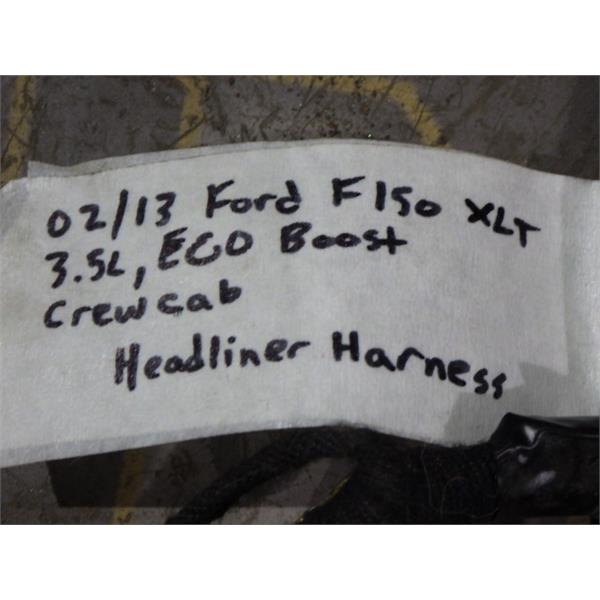 02/13 Ford F150 XLT
3.5L, ECO Boost
Crewcab
Headliner Harness